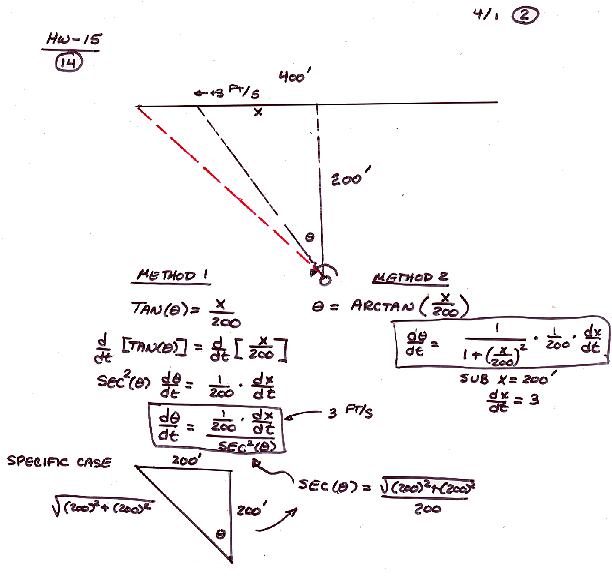 4/1 ②
HW-15
⑭
400'
← 3 FT/S
x
200'
θ
METHOD 1
TAN(θ) = x/200
d/dt [TAN(θ)] = d/dt [x/200]
SEC²(θ) dθ/dt = 1/200 · dx/dt
dθ/dt = (1/200 · dx/dt)/SEC²(θ)
3 FT/S
METHOD 2
θ = ARCTAN(x/200)
dθ/dt = 1/(1+(x/200)²) · 1/200 · dx/dt
SUB x = 200'
dx/dt = 3
SPECIFIC CASE
200'
√(200)²+(200)²
200'
θ
SEC(θ) = √(200)²+(200)²/200